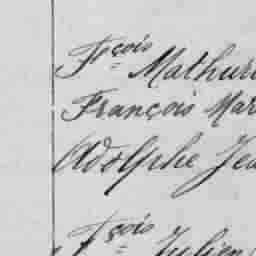 Fçois Mathuri
François Mar
Adolphe Jea
Fçois Julien